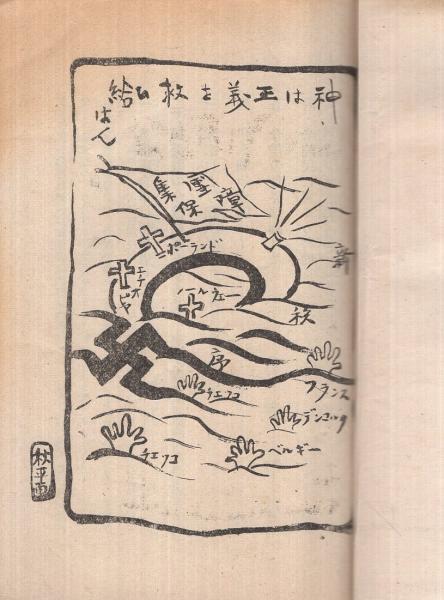 神は正義を救ひ給
はん
集團
保障
ポーランド
エチオピヤ
ノールウェー
新
秩
序
フランス
チェッコ
デンマルク
ベルギー
チェッコ
秋平画